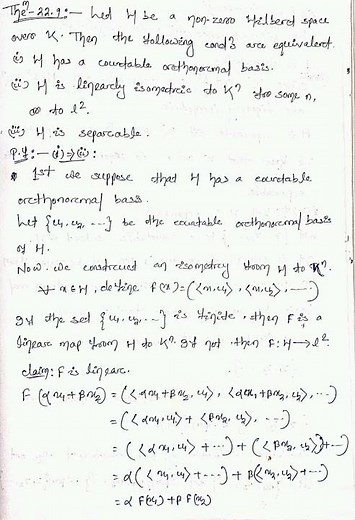 Theᵐ-22.9:- Let H be a non-zero Hilbert space
over K. Then the following condˢ are equivalent.
(i) H has a countable orthonormal basis.
(ii) H is linearly isometric to Kⁿ for some n,
or to l².
(iii) H is separable.
P.f:- (i)⇒(ii):
1st we suppose that H has a countable
orthonormal basis.
Let {u₁, u₂, ...} be the countable orthonormal basis
of H.
Now we construct an isometry from H to Kⁿ.
∀ x∈H, define F(x)=(<x,u₁>, <x,u₂>, ......)
If the set {u₁, u₂, ...} is finite, then F is a
linear map from H to Kⁿ. If not then F: H→l².
claim: F is linear.
F(αx₁+βx₂) = (<αx₁+βx₂, u₁>, <αx₁+βx₂, u₂>, ...)
= (<αx₁, u₁> + <βx₂, u₂>, ...)
= (<αx₁, u₁> + ...) + (<βx₂, u₂>+...)
= α(<x₁, u₁>+...) + β(<x₂, u₂>+...)
= α F(x₁) + β F(x₂)